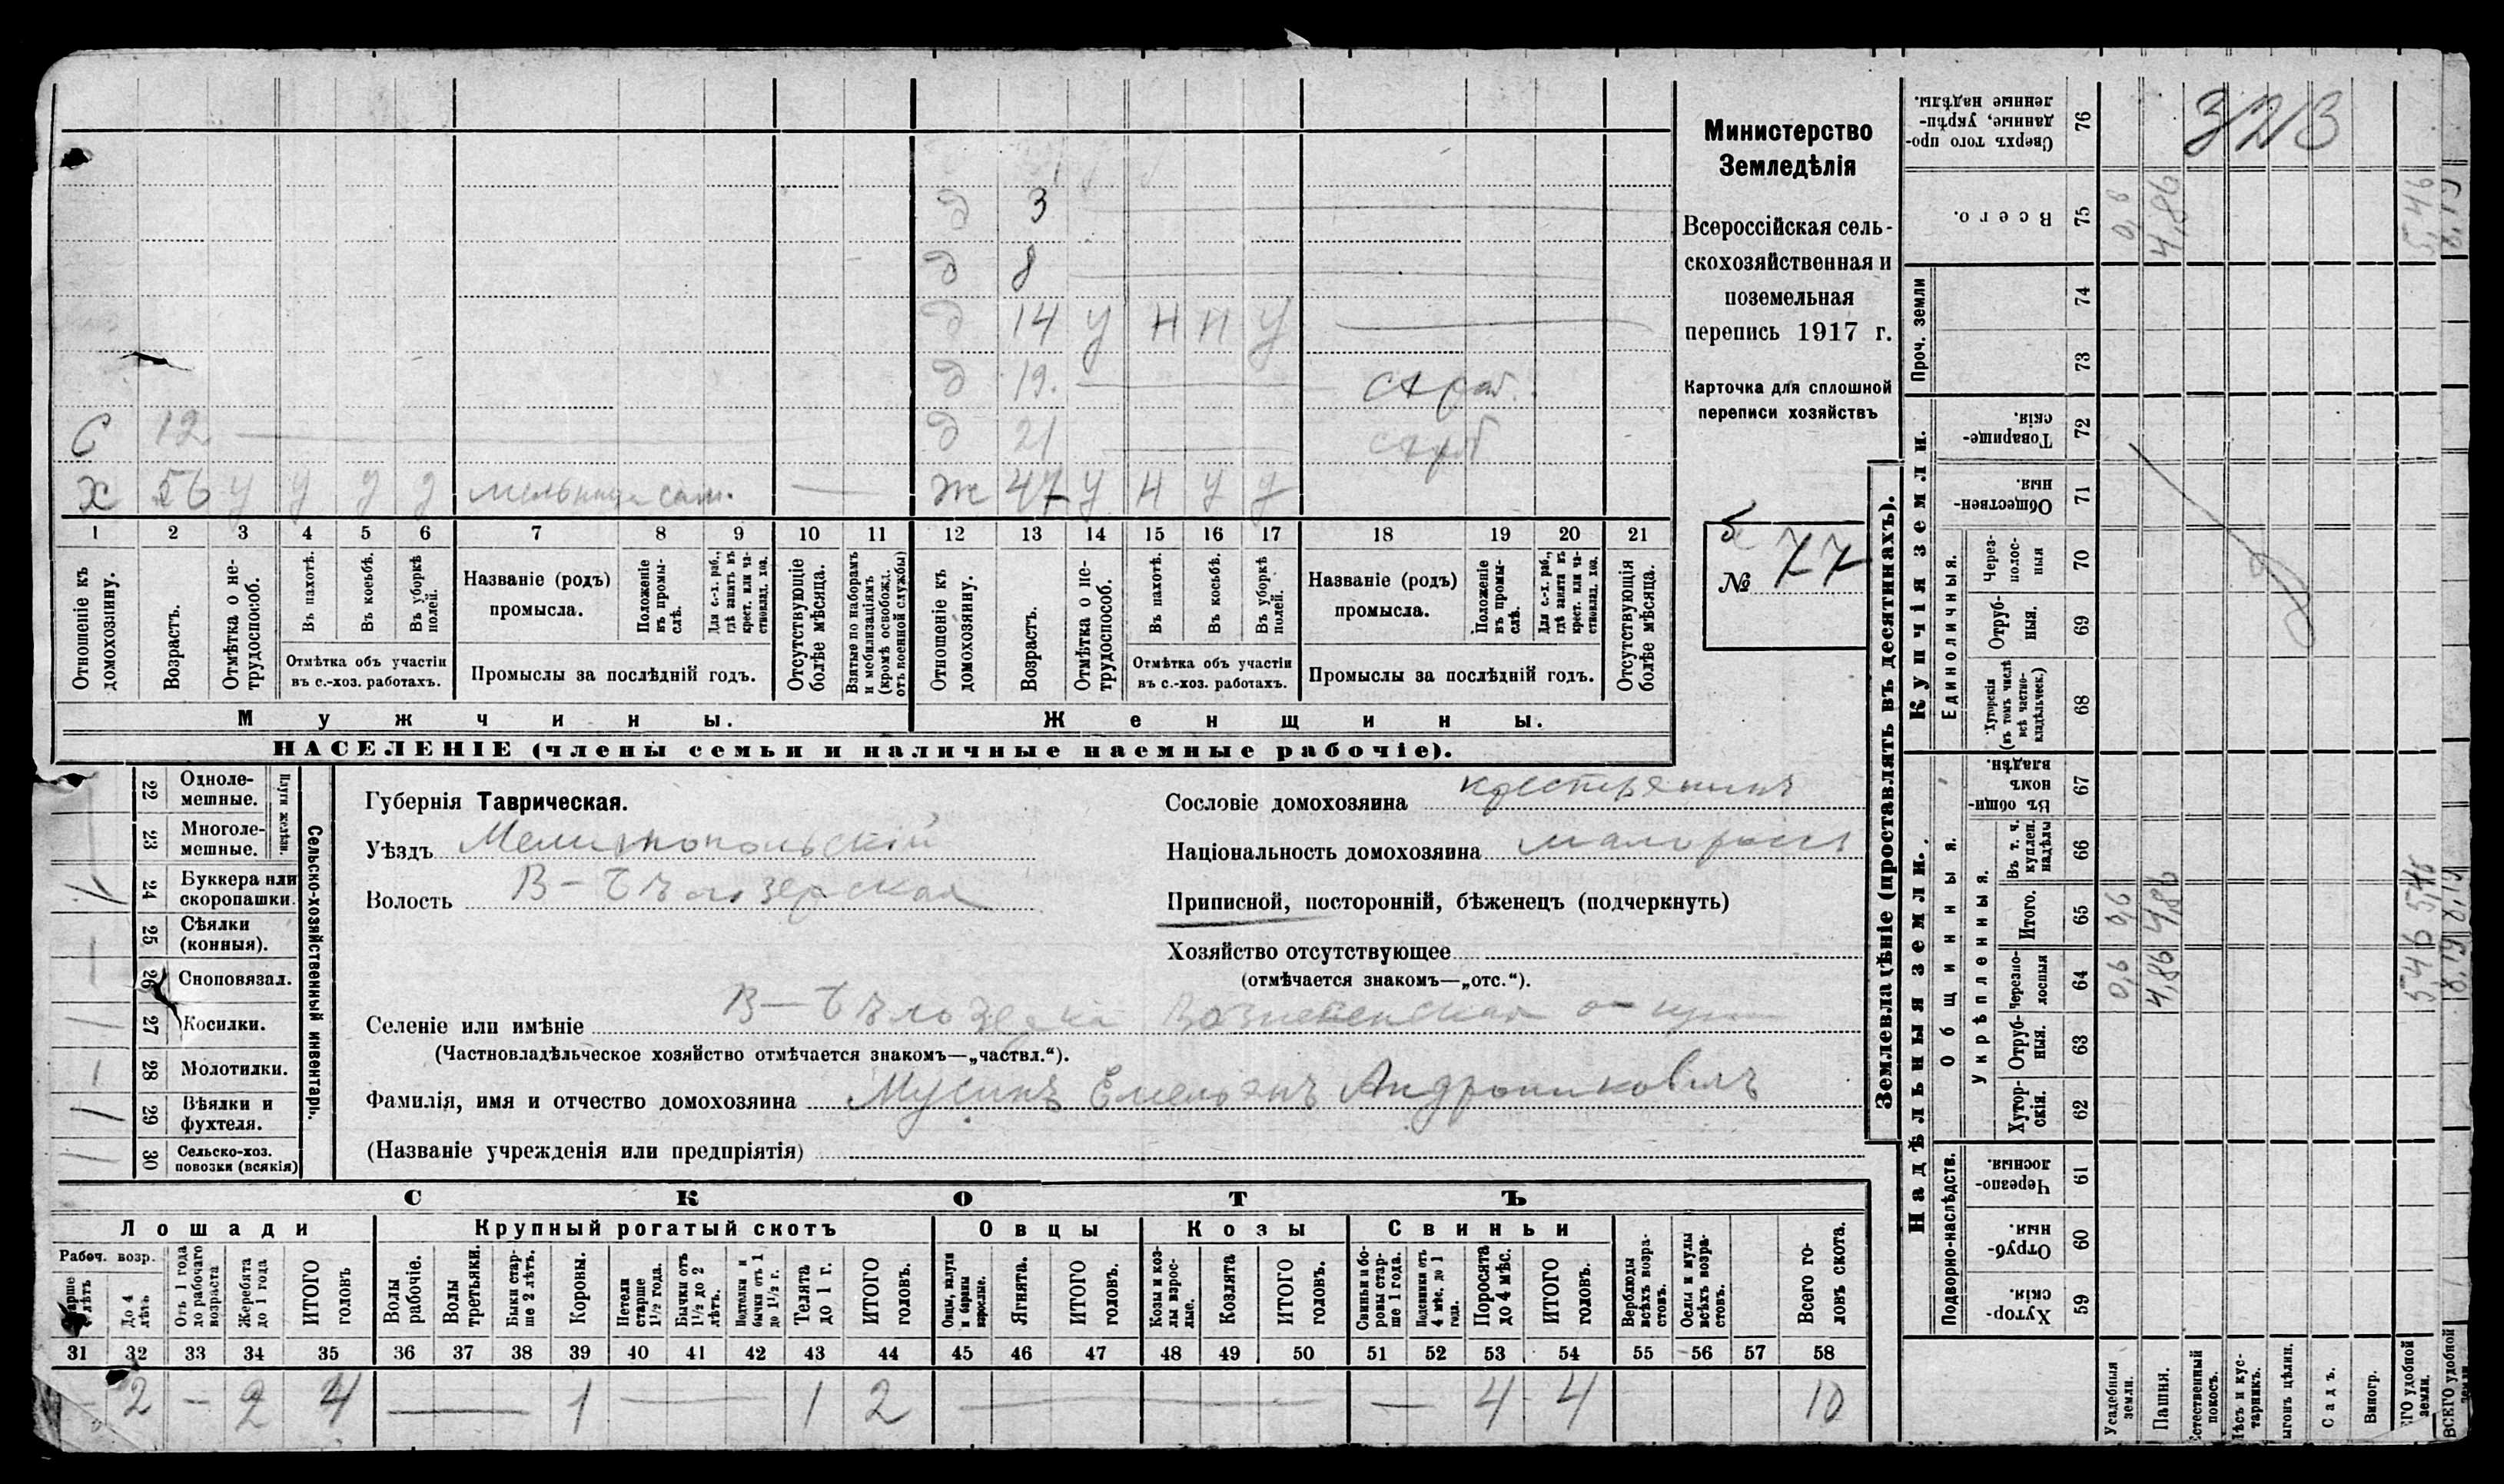 д 3
д 8
д 14 у н н у
д 19. страб.
С 12 д 21
Х 56 у у у у мельница сам. ж 47 у н у у
1 2 3 4 5 6 7 8 9 10 11 12 13 14 15 16 17 18 19 20 21
Отношеніе къ домохозяину.
Возрастъ.
Отмѣтка о не-
трудоспособ.
Въ пахотѣ.
Въ косьбѣ.
Въ уборкѣ полей.
Отмѣтка объ участіи
въ с.-хоз. работахъ.
Названіе (родъ)
промысла.
Положеніе въ промы-
слѣ.
Для с.-х. раб.,
гдѣ занятъ въ
крест. или ча-
стновлад. хоз.
Промыслы за послѣдній годъ.
Отсутствующіе
болѣе мѣсяца.
Взятые по наборамъ
и мобилизаціямъ
(кромѣ освобожд.
отъ военной службы)
Отношеніе къ
домохозяину.
Возрастъ.
Отмѣтка о не-
трудоспособ.
Въ пахотѣ.
Въ косьбѣ.
Въ уборкѣ
полей.
Отмѣтка объ участіи
въ с.-хоз. работахъ.
Названіе (родъ)
промысла.
Положеніе
въ промы-
слѣ.
Для с.-х. раб.,
гдѣ занятъ въ
крест. или ча-
стновлад. хоз.
Промыслы за послѣдній годъ.
Отсутствующія
болѣе мѣсяца.
Мужчины.
Женщины.
НАСЕЛЕНІЕ (члены семьи и наличные наемные рабочіе).
Министерство
Земледѣлія
Всероссійская сель-
скохозяйственная и
поземельная
перепись 1917 г.
Карточка для сплошной
переписи хозяйствъ
№ 77
22 Одноле-
мешные.
23 Многоле-
мешные.
Плуги желѣзн.
24 Буккера или
скоропашки.
25 Сѣялки
(конныя).
26 Сноповязал.
27 Косилки.
28 Молотилки.
29 Вѣялки и
фухтеля.
30 Сельско-хоз.
повозки (всякія)
Сельско-хозяйственный инвентарь.
Губернія Таврическая.
Уѣздъ Мелитопольскій
Волость В-Бѣлозерская
Сословіе домохозяина крестьянинъ
Національность домохозяина малороссъ
Приписной, посторонній, бѣженецъ (подчеркнуть)
Хозяйство отсутствующее
(отмѣчается знакомъ—„отс.“).
Селеніе или имѣніе В-Бѣлозерка Вознесенская
(Частновладѣльческое хозяйство отмѣчается знакомъ—„частвл.“).
Фамилія, имя и отчество домохозяина Мусинъ Емельянъ Андрониковичъ
(Названіе учрежденія или предпріятія)
СКОТЪ
Лошади
Крупный рогатый скотъ
Овцы
Козы
Свиньи
Рабоч. возр.
До 4
лѣтъ
Отъ 1 года
до рабочаго
возраста
Жеребята
до 1 года
ИТОГО
головъ
Волы
рабочіе.
Волы
третьяки.
Быки стар-
ше 2 лѣтъ.
Коровы.
Нетели
старше
1½ года.
Бычки отъ
1½ до 2
лѣтъ.
Телята
до 1 г.
ИТОГО
головъ.
Ягнята.
ИТОГО
головъ.
Козы и коз-
лы взрос-
лые.
Козлята
ИТОГО
головъ.
Свиньи и бо-
ровы стар-
ше 1 года.
Поросята
до 4 мѣс.
ИТОГО
головъ.
Верблюды
всѣхъ возра-
стовъ.
Ослы и мулы
всѣхъ возра-
стовъ.
Всего го-
ловъ скота.
31 32 33 34 35 36 37 38 39 40 41 42 43 44 45 46 47 48 49 50 51 52 53 54 55 56 57 58
2 — 2 4 — 1 — 1 2 — — 4 4 10
Землевладѣніе (проставлять въ десятинахъ).
Купчія земли.
Надѣльныя земли.
Проч. земли
Единоличныя.
Общинныя.
Укрѣпленныя.
Подворно-наслѣдств.
76 Сверхъ того про-
данные, укрѣп-
ленные надѣлы.
323
75 Всего. 0,6 4,86 5,46 8,19
74
73
72 Товарище-
скія.
71 Обществен-
ныя.
70 Через-
полос-
ныя
69 Отруб-
ныя.
68 Хуторскія
(въ томъ числѣ
всѣ частно-
владѣльческ.)
67 Въ общин-
номъ
владѣн.
66 Въ т. ч.
куплен.
надѣлы
65 Итого. 0,6 4,86 5,46 8,19
64 Черезпо-
лосныя 0,6 4,86 5,46 8,19
63 Отруб-
ныя.
62 Хутор-
скія.
61 Черезпо-
лосныя.
60 Отруб-
ныя.
59 Хутор-
скія.
Усадебныя
земли.
Пашня.
Естественный
покосъ.
Лѣсъ и кус-
тарникъ.
Выгонъ цѣлин.
Садъ.
Виногр.
ВСЕГО удобной
земли.